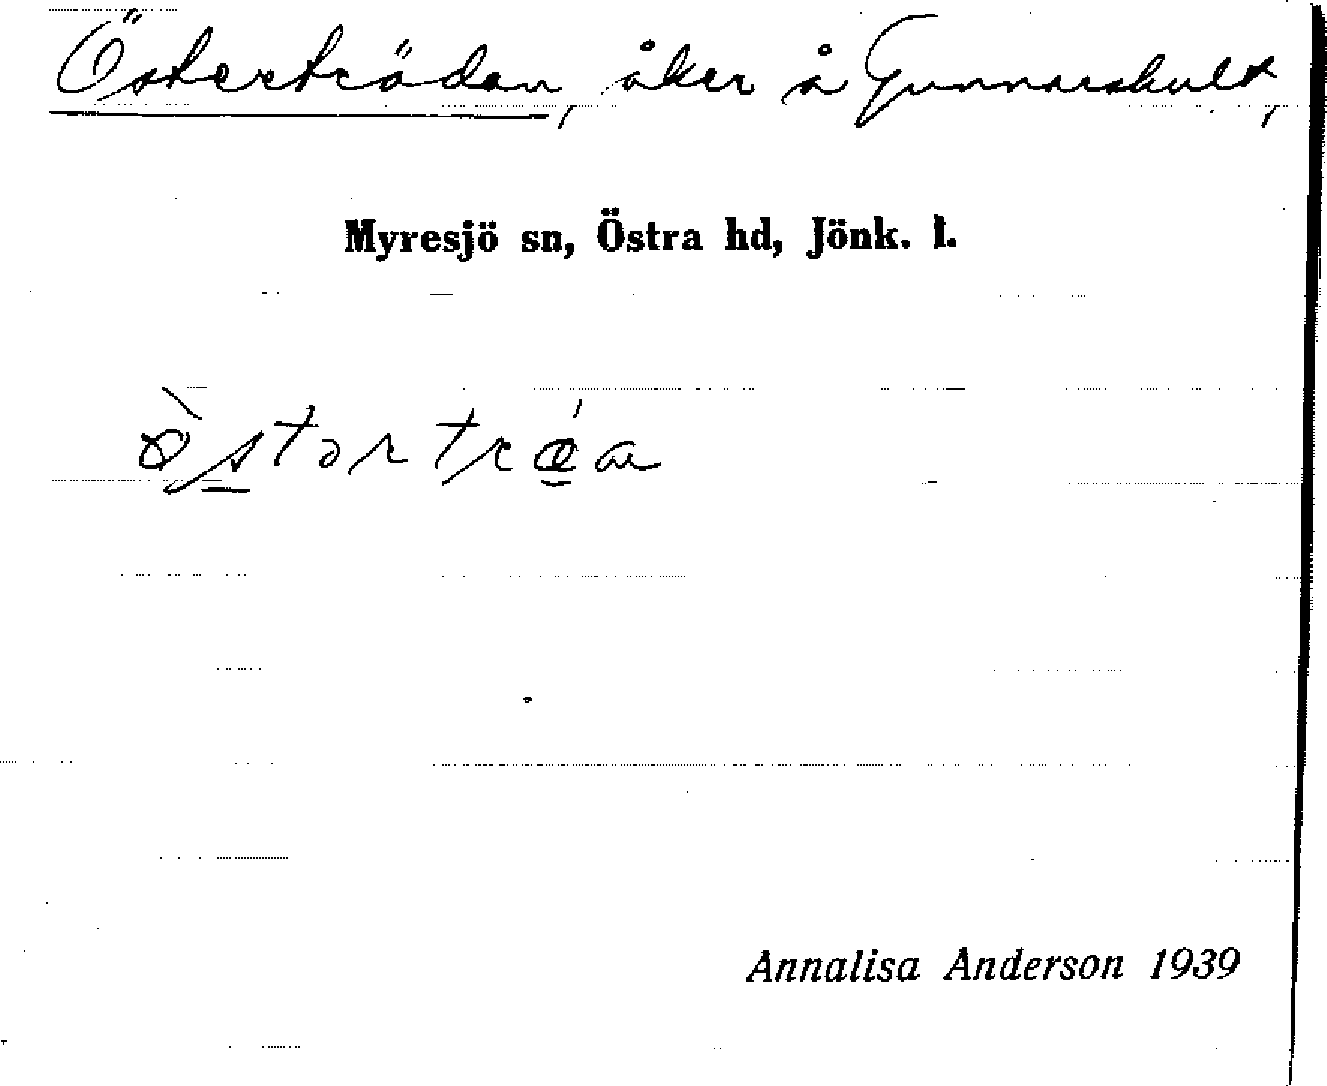 Österträdan, åker å Gunnarskult,
Myresjö sn, Östra hd, Jönk. l.
Annalisa Anderson 1939